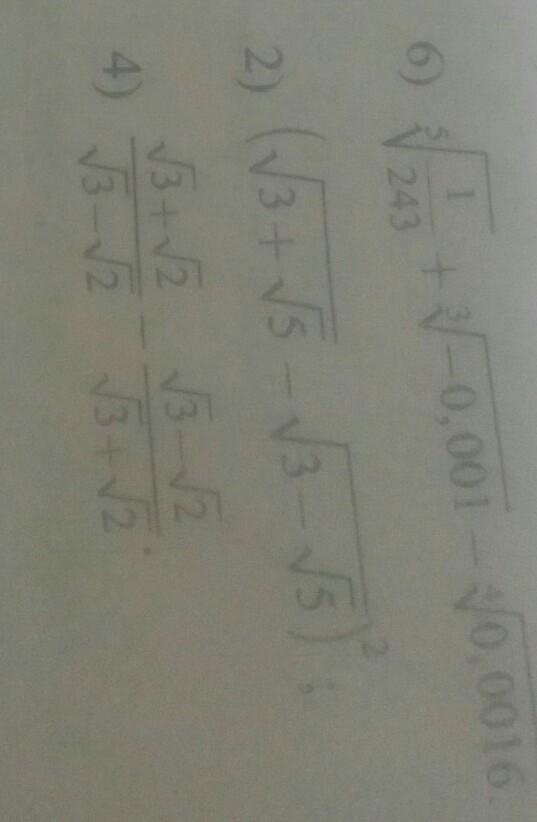 6) \sqrt[5]{\frac{1}{243}} + \sqrt[3]{-0,001} - \sqrt[4]{0,0016}.
2) (\sqrt{3+\sqrt{5}} - \sqrt{3-\sqrt{5}})^2;
4) \frac{\sqrt{3}+\sqrt{2}}{\sqrt{3}-\sqrt{2}} - \frac{\sqrt{3}-\sqrt{2}}{\sqrt{3}+\sqrt{2}}.